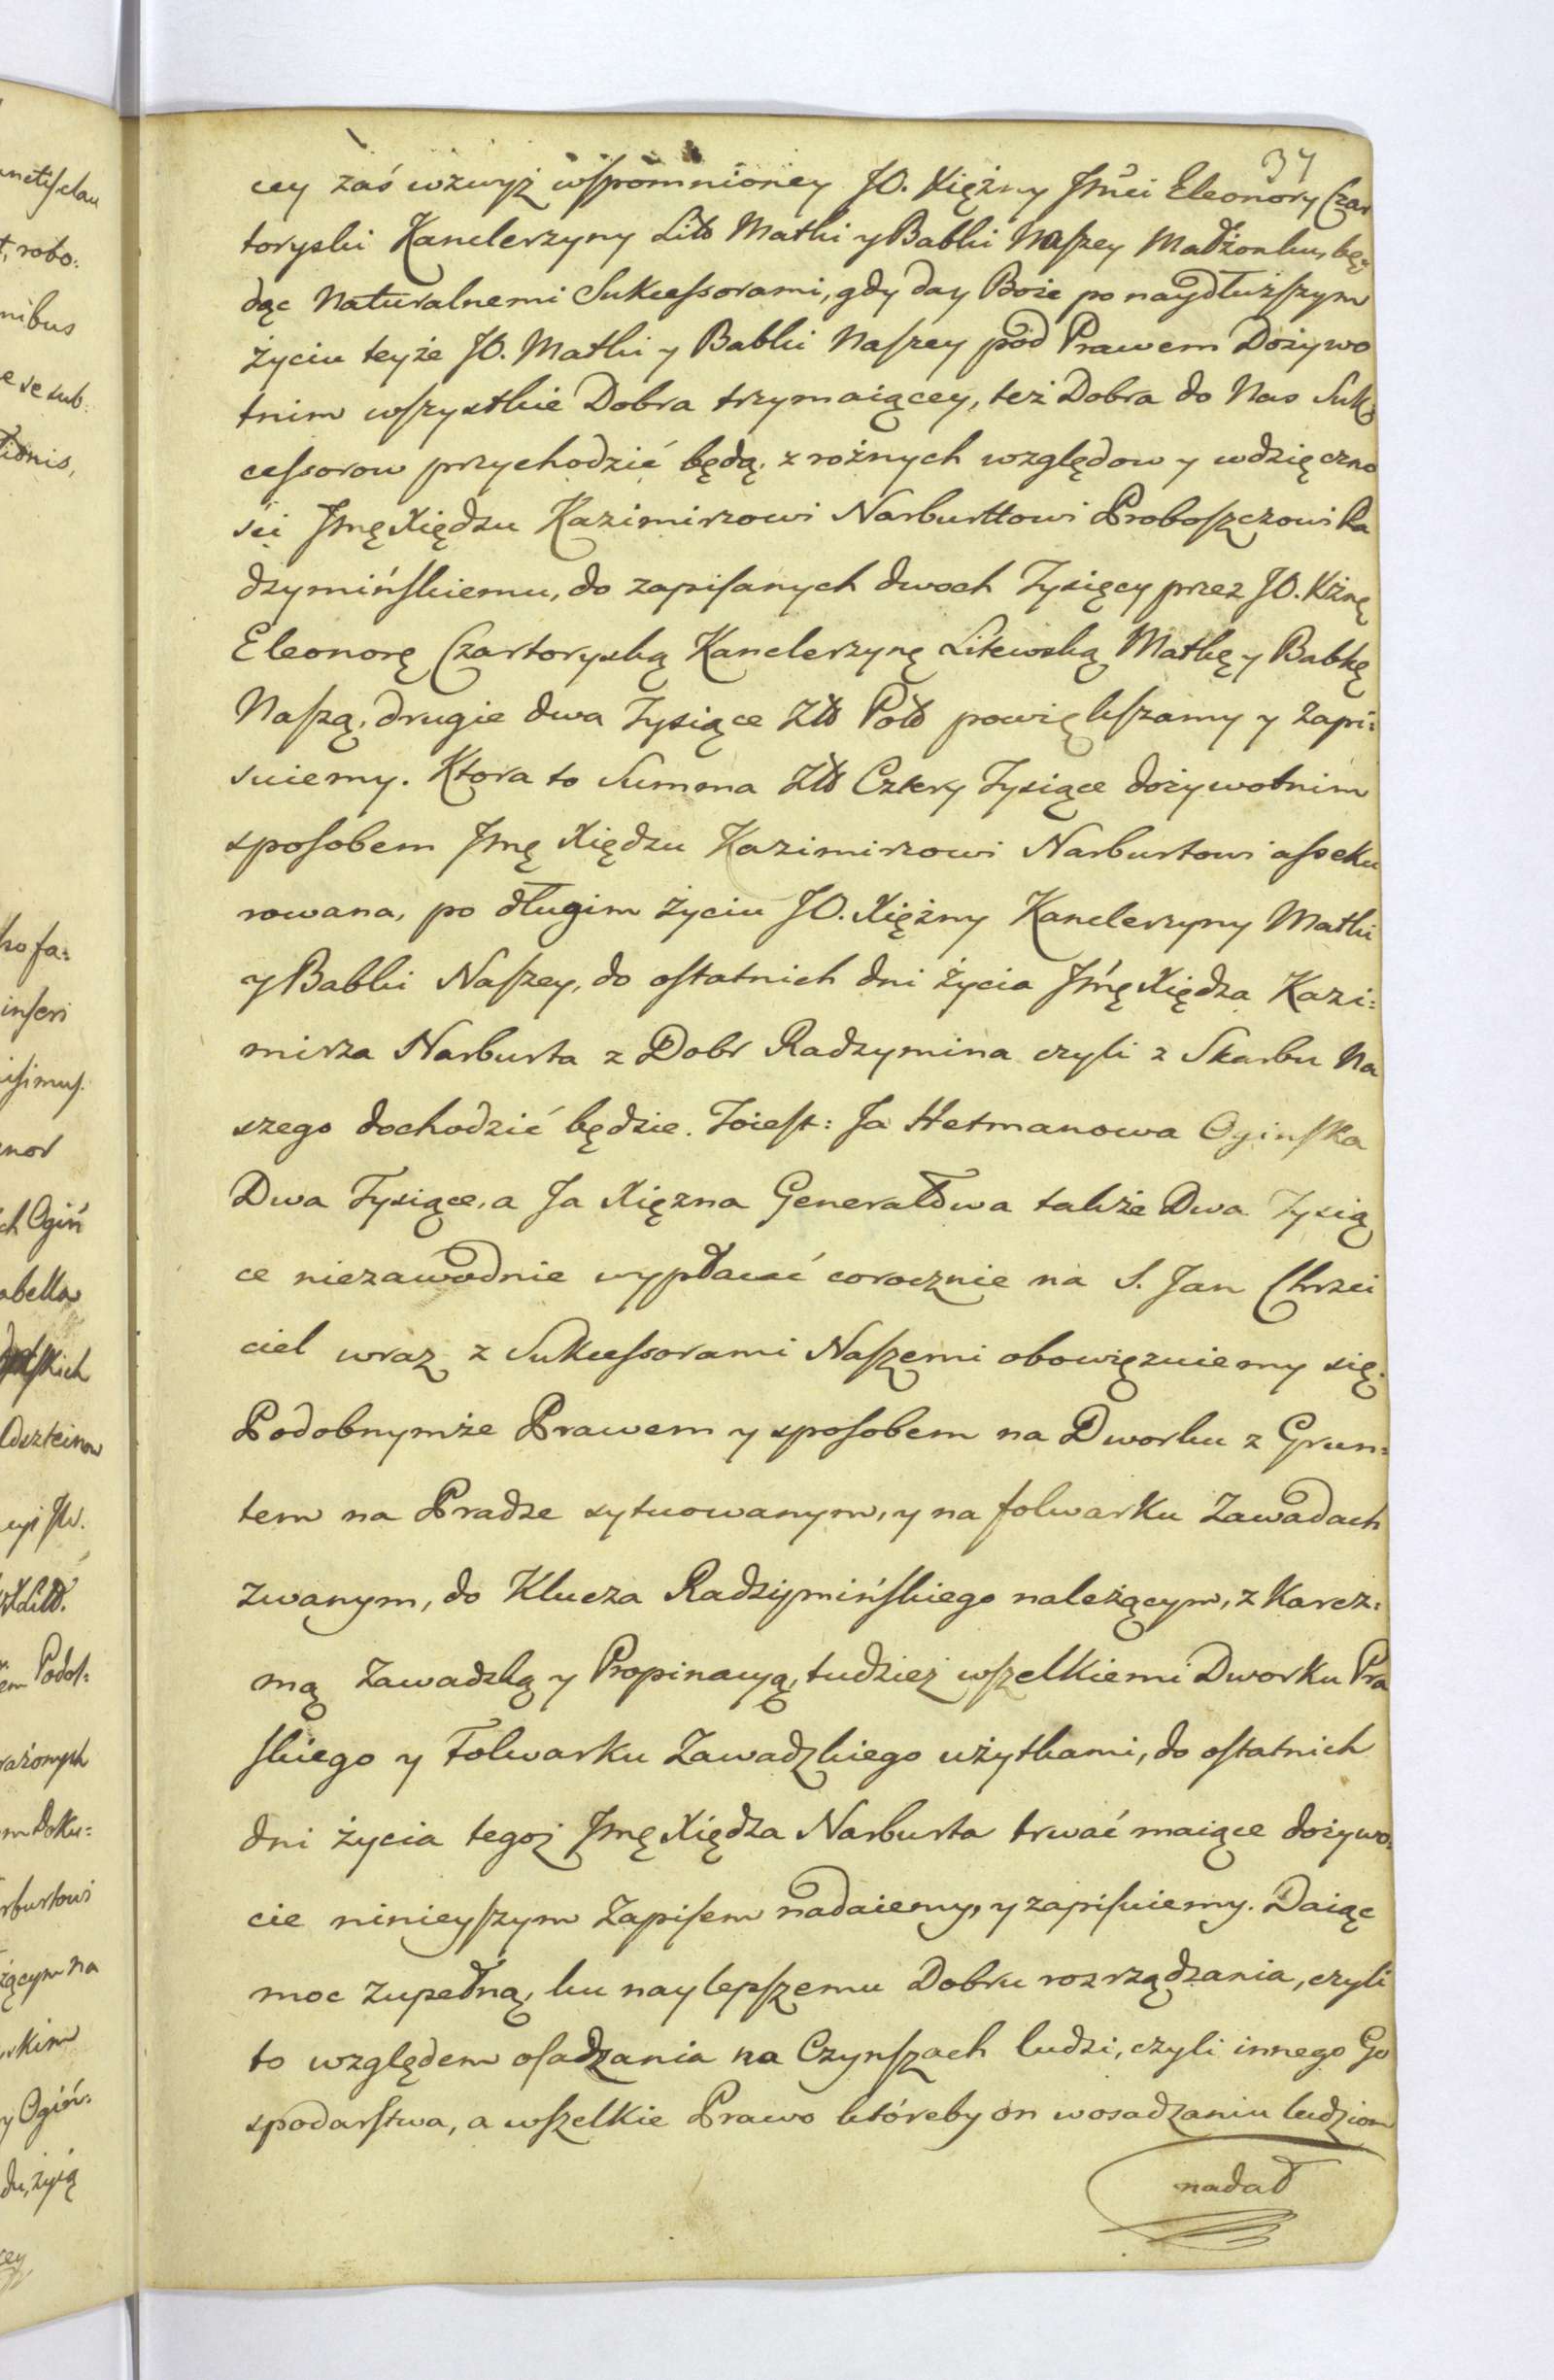 37
cey zaś wzwyż wspomnioney JO. Xiężny Jmći Eleonory Czar
toryski Kanclerzyny Litt Matki y Babki Naszey Małżonku, bę
dąc Naturalnemi Sukcessorami, gdy day Boże po naydłuższym
życiu teyże JO. Matki y Babki Naszey pod Prawem Dożywo
tnim wszystkie Dobra trzymaiącey, też Dobra do Nas Suk
cessorow przychodzić będą, z rożnych względow y wdzięczno
ści Jmę Xiędzu Kazimirzowi Narburttowi Proboszczowi Ra
dzymińskiemu, do zapisanych dwoch Tysięcy przez JO. Xżnę
Eleonorę Czartoryską Kanclerzynę Litewską Matkę y Babkę
Naszą, drugie dwa Tysiące Złł Poll powiększamy y Zapi=
suiemy. Ktora to Summa Złł Cztery Tysiące dożywotnim
sposobem Jmę Xiędzu Kazimirzowi Narburtowi asseku
rowana, po długim życiu JO. Xiężny Kanclerzyny Matki
y Babki Naszey, do ostatnich dni życia Jmę Xiędza Kazi=
mirza Narburta z Dobr Radzymina czyli z Skarbu Na
szego dochodzić będzie. Toiest: Ja Hetmanowa Oginska
Dwa Tysiące, a Ja Xięzna Generałowa także Dwa Tysią
ce niezawodnie wypłacać corocznie na S. Jan Chrzci
ciel wraz z Sukcessorami Naszemi obowięzuiemy się.
Podobnymże Prawem y sposobem na Dworku z Grun=
tem na Pradze sytuowanym, y na folwarku Zawadach
zwanym, do Klucza Radzymińskiego należącym, z Karcz=
mą Zawadzką y Propinacyą, tudzież wszelkiemi Dworku Pra
skiego y Folwarku Zawadzkiego użytkami, do ostatnich
dni życia tegoż Jmę Xiędza Narburta trwać maiące dożywo=
cie ninieyszym Zapisem nadaiemy, y zapisuiemy. Daiąc
moc zupełną, ku naylepszemu Dobru rozrządzania, czyli
to względem osadzania na Czynszach ludzi, czyli innego Go
spodarstwa, a wszelkie Prawo któreby on wosadzaniu ludziom
nadał